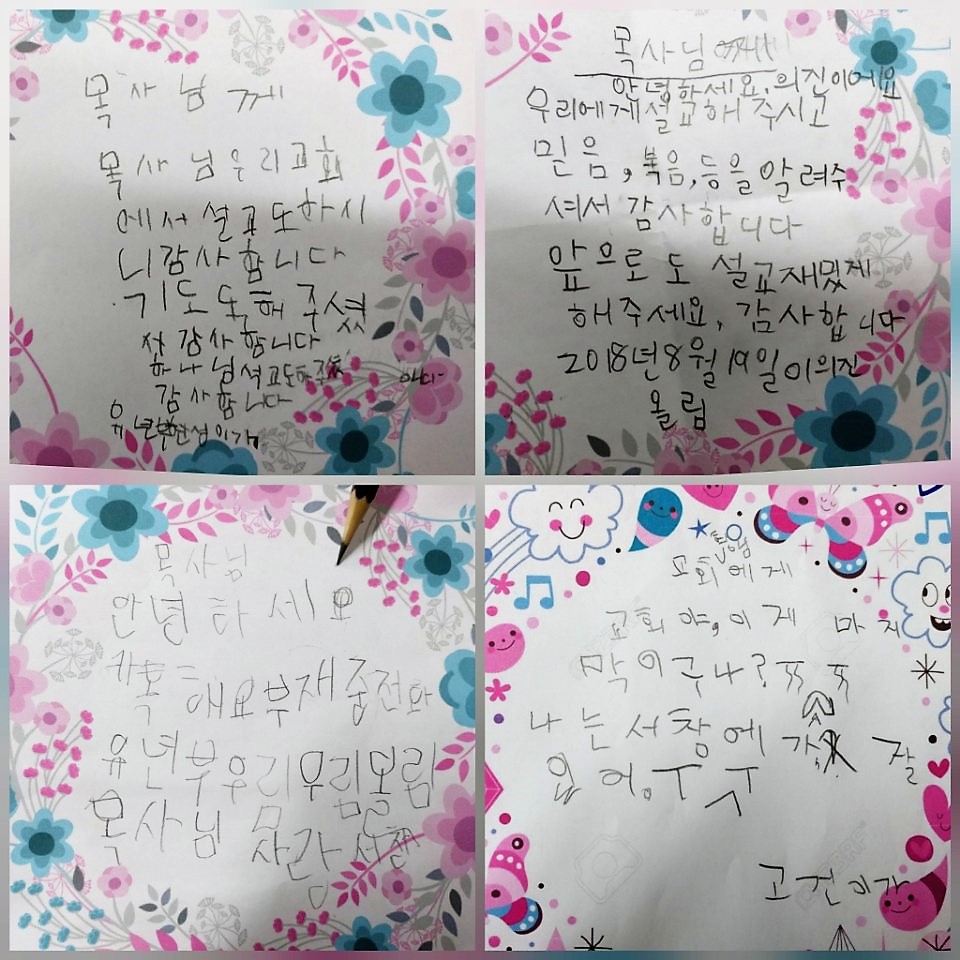 목사님께
목사님 우리교회
에서 설교도 하시
니 감사합니다
기도도 해 주셨
서 감사합니다
하나님 석교도
감사합니다
목사님
안녕하세요. 의진이에요
우리에게 설교해 주시고
믿음, 복음, 등을 알려주
셔서 감사합니다
앞으로도 설교 재밌게
해주세요, 감사합니다
2018년8월19일 이의진
올림
목사님
안녕하세요
카톡해요 부재중전화
유년부 우리 우림올림
목사님
교회에게
교회야, 이제 마지
막이구나? ㅠㅠ
나는 서창에 가 잘
있어. ㅜㅜ
고건이가